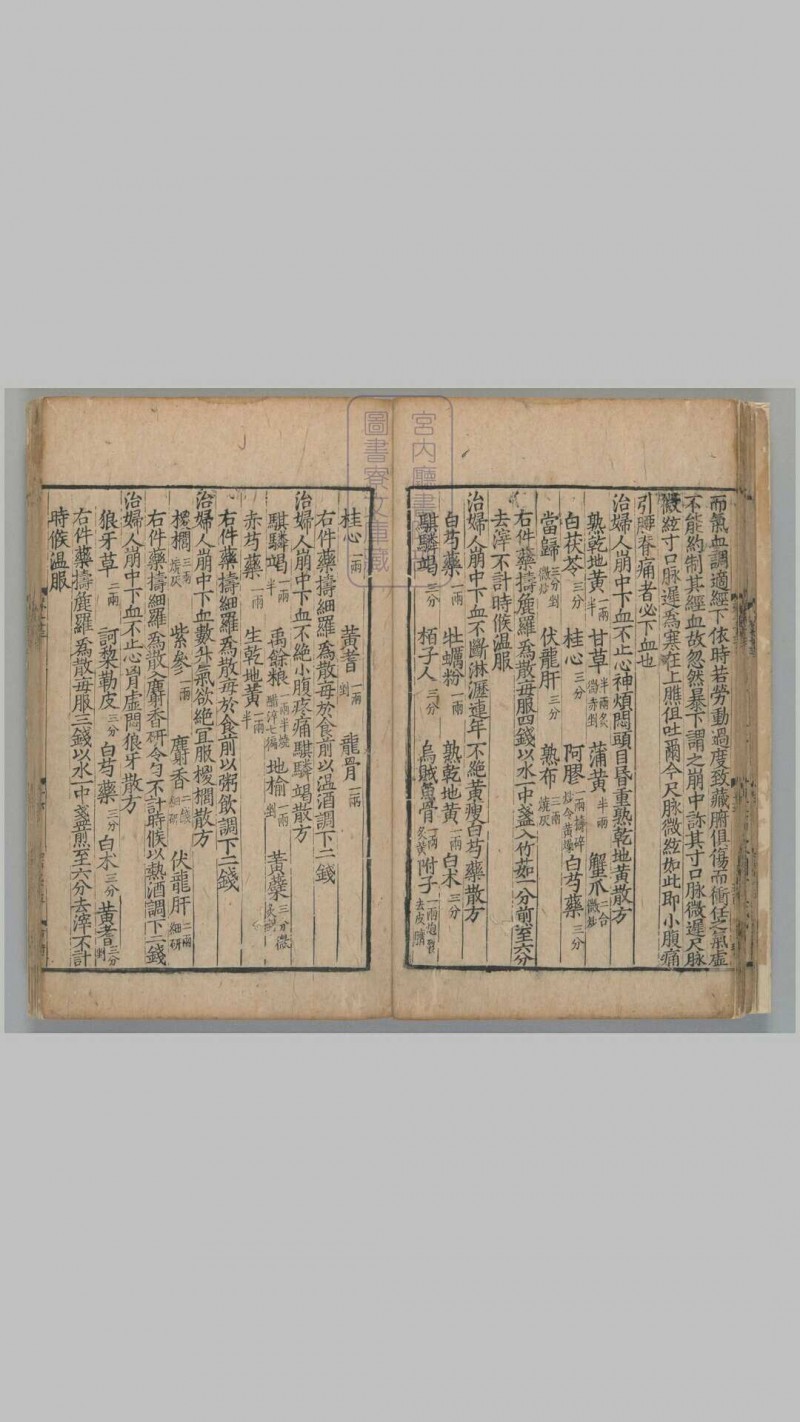 而氣血調適經下依時若勞動過度致藏腑俱傷而衝任之氣虛
不能約制其經血故忽然暴下謂之崩中診其寸口脉微遲尺脉
微絃寸口脉遲爲寒在上膲但吐爾今尺脉微絃如此即小腹痛
引腰脊痛者必下血也
治婦人崩中下血不止心神煩悶頭目昏重熟乾地黃散方
熟乾地黃一兩半 甘草半兩炙微赤剉 蒲黃半兩 蟹爪二合微炒
白茯苓三分 桂心三分 阿膠一兩擣碎炒令黃燥 白芍藥三分
當歸三分剉微炒 伏龍肝三分 熟布三兩燒灰
右件藥擣麁羅爲散每服四錢以水一中盞入竹茹一分煎至六分
去滓不計時候温服
治婦人崩中下血不斷淋瀝連年不絕黃瘦白芍藥散方
白芍藥一兩 牡蠣粉一兩 熟乾地黃一兩 白术三分
騏驎竭三分 栢子人三分 烏賊魚骨一兩炙黃 附子一兩炮裂去皮臍
桂心一兩 黃耆一兩剉 龍骨一兩
右件藥擣細羅爲散每於食前以温酒調下二錢
治婦人崩中下血不絕小腹疼痛騏驎竭散方
騏驎竭一兩半 禹餘粮一兩半燒醋淬七徧 地榆一兩剉 黃蘗三分微炙剉
赤芍藥一兩 生乾地黃一兩半
右件藥擣細羅爲散每於食前以粥飲調下二錢
治婦人崩中下血數升氣欲絕宜服椶櫚散方
椶櫚三兩燒灰 紫參一兩 麝香二錢細研 伏龍肝二兩細研
右件藥擣細羅爲散入麝香研令勻不計時候以熱酒調下二錢
治婦人崩中下血不止心胷虛悶狼牙散方
狼牙草二兩 訶棃勒皮三分 白芍藥三分 白术三分 黃耆三分剉
右件藥擣麁羅爲散每服三錢以水一中盞煎至六分去滓不計
時候温服
宮內廳書
圖書寮文庫藏